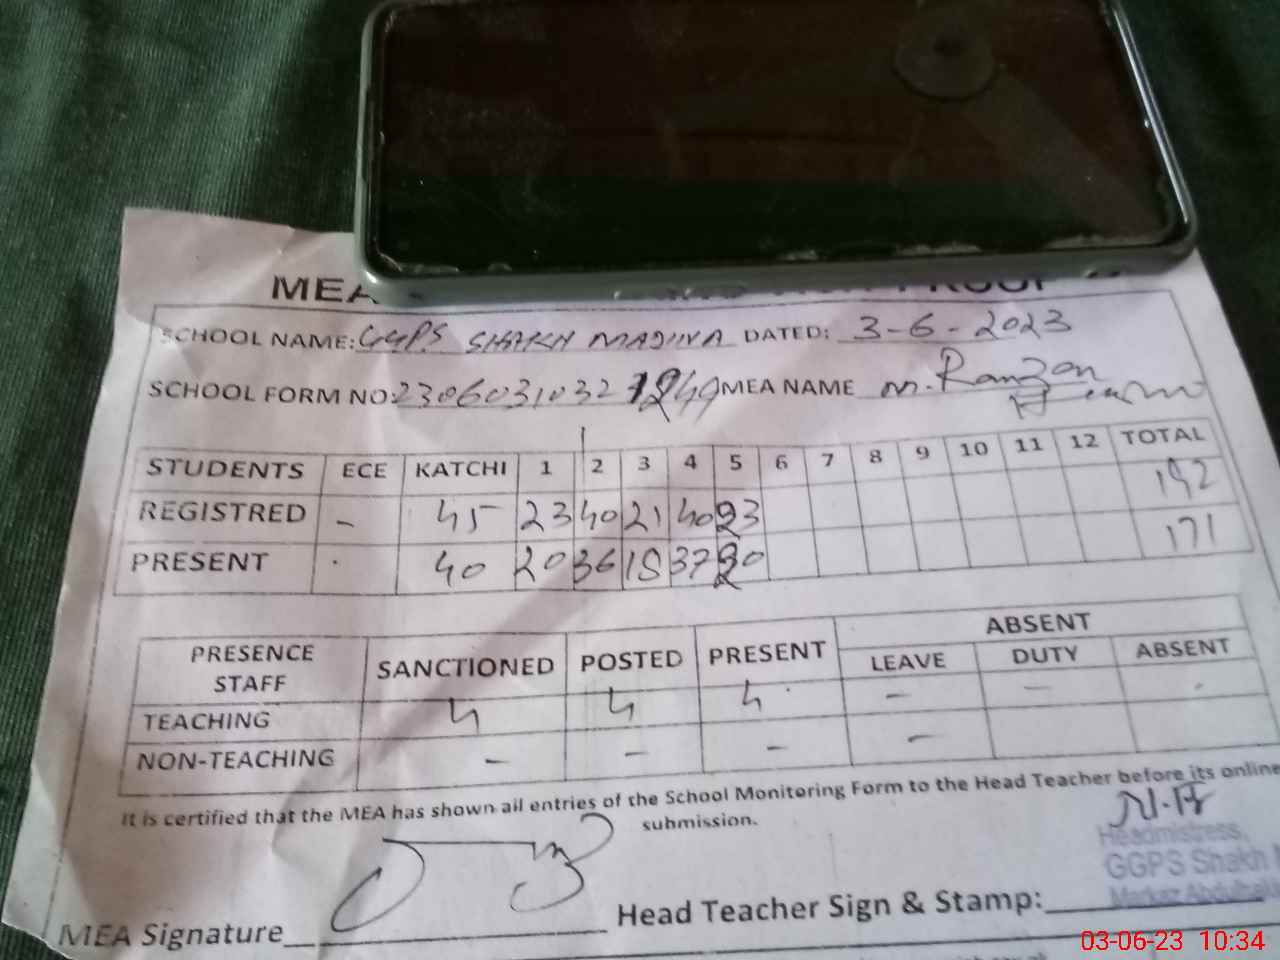 MEA PROOF
SCHOOL NAME: GGPS SHAKH MADINA DATED: 3-6-2023
SCHOOL FORM NO: MEA NAME M. Ramzan
STUDENTS ECE KATCHI 1 2 3 4 5 6 7 8 9 10 11 12 TOTAL
REGISTRED - 45 23 40 21 40 23 192
PRESENT . 40 20 36 18 37 20 171
PRESENCE STAFF SANCTIONED POSTED PRESENT ABSENT
LEAVE DUTY ABSENT
TEACHING 4 4 4 - - -
NON-TEACHING - - - -
It is certified that the MEA has shown all entries of the School Monitoring Form to the Head Teacher before its online
submission.
Headmistress,
GGPS Shakh
Markaz
MEA Signature Head Teacher Sign & Stamp:
03-06-23 10:34